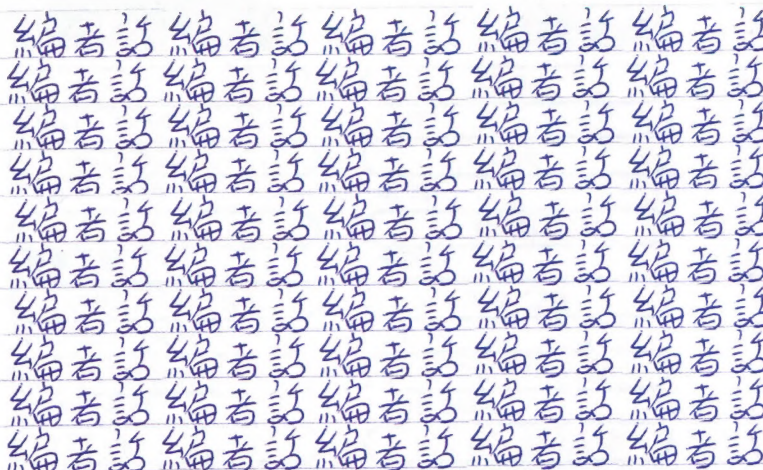 編者話編者話編者話編者話編者話
編者話編者話編者話編者話編者話
編者話編者話編者話編者話編者話
編者話編者話編者話編者話編者話
編者話編者話編者話編者話編者話
編者話編者話編者話編者話編者話
編者話編者話編者話編者話編者話
編者話編者話編者話編者話編者話
編者話編者話編者話編者話編者話
編者話編者話編者話編者話編者話